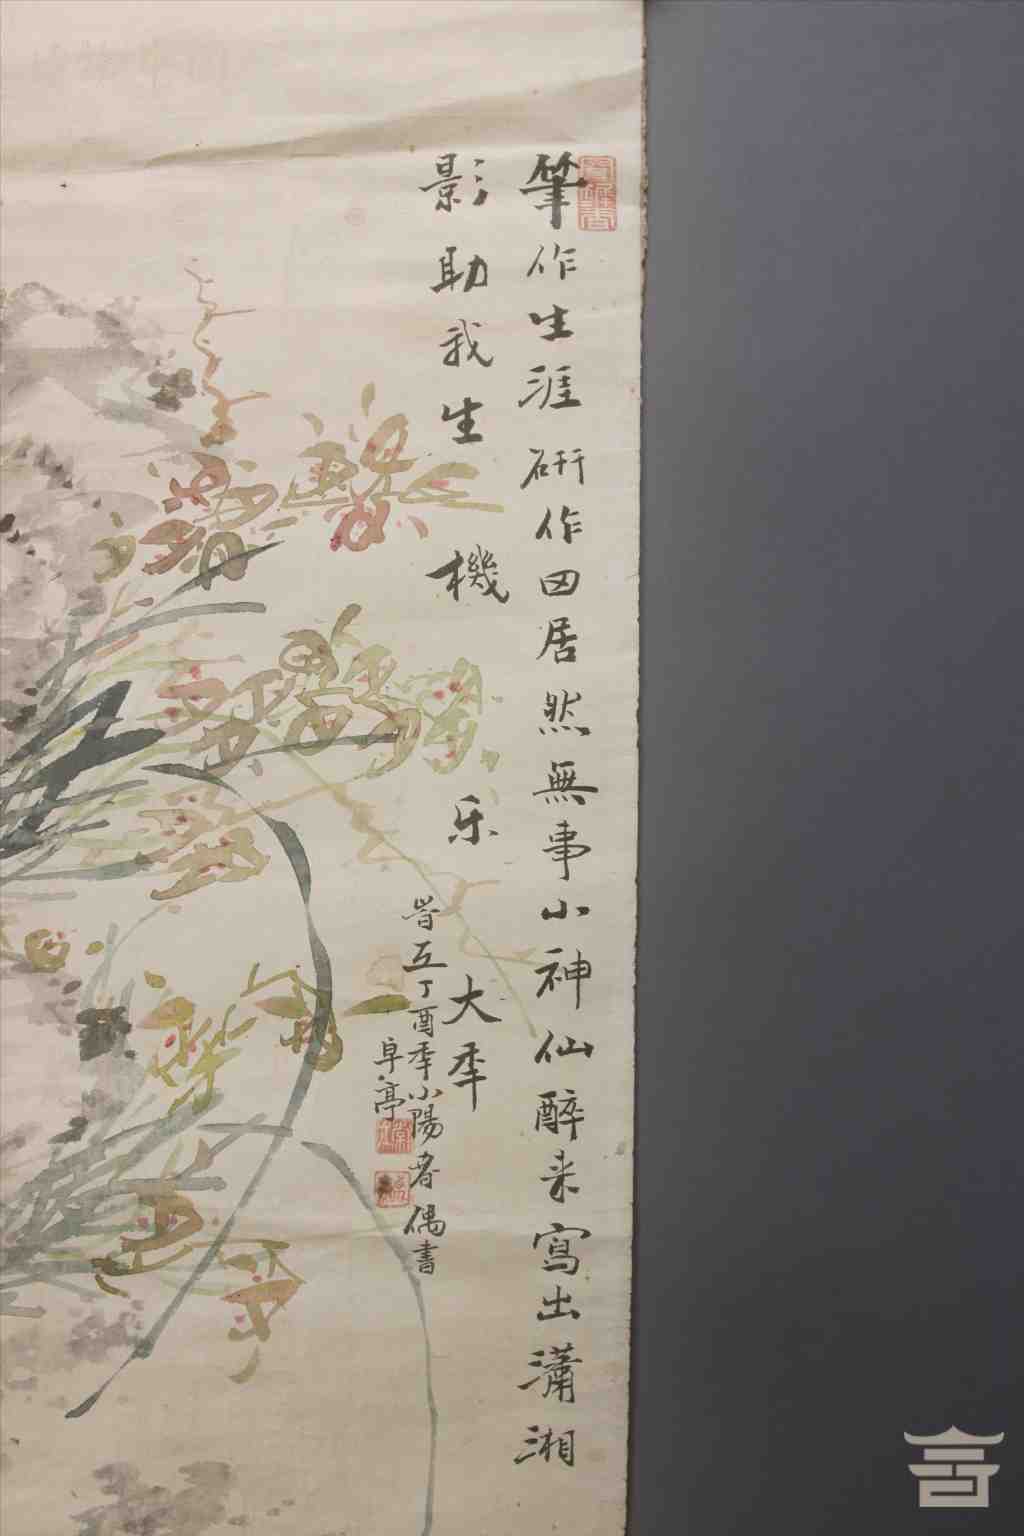 筆作生涯研作田居然無事小神仙醉来寫出瀟湘
影助我生機乐大年
丁酉年小陽者偶書
卓亭